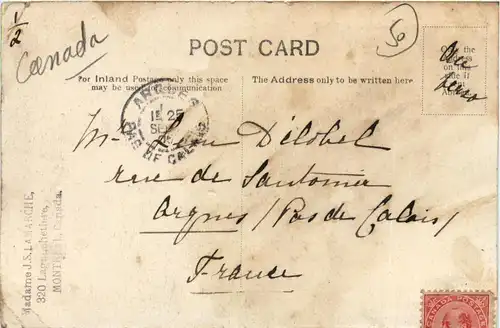 1/2
Canada
50
POST CARD
For Inland Postage only this space
may be used for communication
The Address only to be written here.
Only the
Address
on this
side if
Au
verso
ARQUES
1E 25
SEPT
PAS DE CALAIS
M. Léon Délobel
rue de Santomer
Arques / Pas de Calais /
France
Madame J.S. LAMARCHE,
320 Lagauchetière,
MONTREAL, Canada.